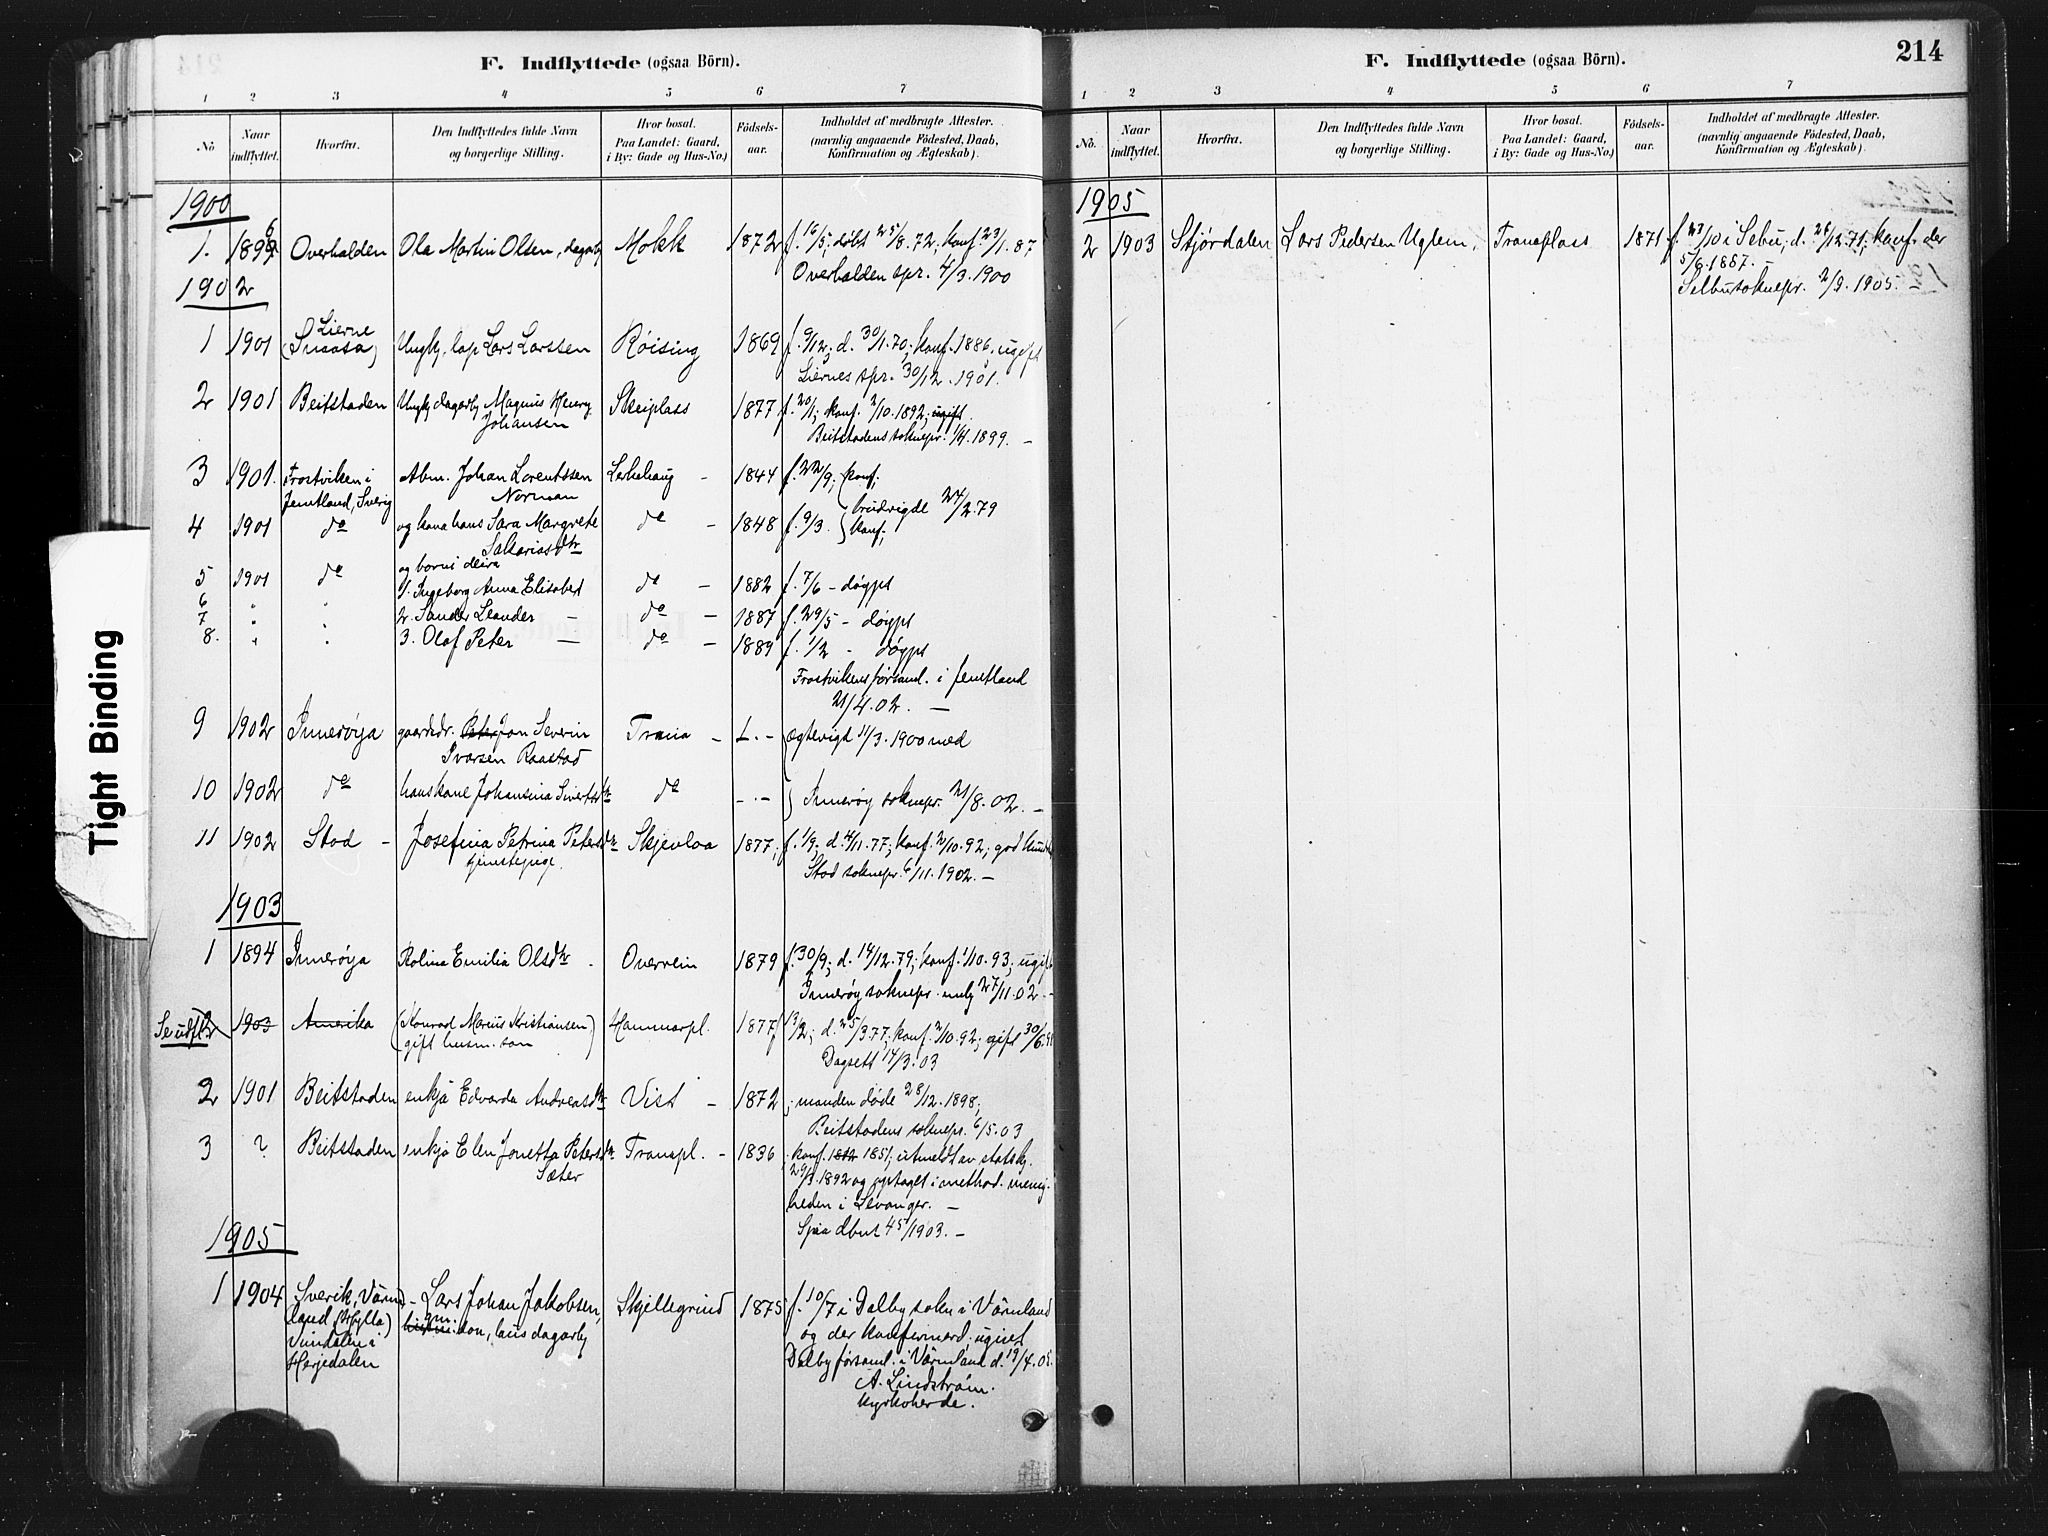 F. Indflyttede (ogsaa Börn).
1 2 3 4 5 6 7
No Naar indflyttet. Hvorfra. Den Indflyttedes fulde Navn og borgerlige Stilling. Hvor bosat. Paa Landet: Gaard, i By: Gade og Hus-No.) Födsels-aar. Indholdet af medbragte Attester. (navnlig angaaende Födested, Daab, Konfirmation og Ægteskab).
1900
1. 1896 Overhalden Ola Martin Olsen, dagarb Mokk 1872 f. 16/5; döbt 25/8.72, konf 23/1.87
Overhalden spr. 4/3.1900
1902
1 1901 Lierne (Snaasa) Ungk. lap Lars Larssen Røising 1869 f. 9/12; d. 30/1.70; konf. 1886, ugift
Liernes spr. 30/12.1901.
2 1901 Beitstaden Ungk dagarb Magnus Henry Johansen Skeiplass 1877 f. 20/1; konf. 2/10.1892; ugift.
Beitstadens soknepr. 1/4.1899. –
3 1901. Frostviken i Jemtland, Sverig Abm. Johan Lorentssen Norman Lerkehaug - 1844 f. 22/9; konf;
brudvigde 24/2.79
4 1901 do og kona hans Sara Margrete Sakariasdtr do - 1848 f. 9/3. konf;
og borni deira
5 1901 do 1. Ingeborg Anna Elisabet do - 1882 f. 7/6 - døypt
6
7 2. Sander Leander - do - 1887 f. 29/5 - døypt
8. 3. Olaf Peter - do - 1889 f. 1/2 - døypt
Frostvikens församl. i Jemtland
21/4.02. –
9 1902 Innerøya gaardbr. Peter Jon Severin Ivarsen Raastad Trana - L. - ægtevigt 11/3.1900 med
10 1902 do hans kone Johansina Sivertsdtr do - . - Innerøy soknepr. 21/8.02. –
11 1902 Stod - Josefina Petrina Petersdtr tjenstepige. Skjevloa 1877; f. 1/9; d. 4/11.77; konf. 2/10.92; god kund
Stod soknepr. 6/11.1902. –
1903
1 1894 Innerøya Rolina Emilia Olsdtr. Overrein 1879 f. 30/9; d. 14/12.79; konf. 1/10.93; ugift
Innerøy soknepr. 27/11.02. –
Se udfl. 2 1903 Amerika (Konrad Marius Kristiansen, gift husm. søn) Hammarpl. 1877 f 3/2; d. 25/3.77; konf. 2/10.92; gift 30/6.98
Dagsett 14/3.03
2 1901 Beitstaden enkja Edvarda Andreasdtr Vist - 1872 ; manden døde 28/12.1898;
Beitstadens soknepr. 6/5.03
3 ? Beitstaden enkja Elen Jonetta Petersdtr Sæter Tranapl. - 1836 konf. 1852 1851; utmeldt av statsk.
29/3.1892 og optaget i method. menig-
heden i Levanger. –
1903. –
1905
1 1904 Sverik, Värm-land (Hylla) Vindalen i Herjedalen - Lars Johan Jakobsen, gm. søn, laus dagarb Skjellegrind 1875 f. 10/7 i Dalby sokn i Värmland
og der konfirmerd; ugift
Dalby församl. i Värmland d. 19/4.05.
A. Lindström.
kyrkoherde.
Tight Binding
F. Indflyttede (ogsaa Börn). 214
1 2 3 4 5 6 7
No. Naar indflyttet. Hvorfra. Den Indflyttedes fulde Navn og borgerlige Stilling. Hvor bosat. Paa Landet: Gaard, i By: Gade og Hus-No.) Födsels-aar. Indholdet af medbragte Attester. (navnlig angaaende Födested, Daab, Konfirmation og Ægteskab).
1905
2 1903 Stjördalen Lars Pedersen Uglem, Tranaplass 1871 f. 23/10 i Sebu; d. 26/12.71; konf. der
5/6.1887. –
Selbu soknepr. 2/9.1905. –